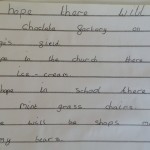 hope there will
Choclate factory on
field
in the church there
ice-cream
hope in School there
Mint grass chairs
will be shops
my bears.